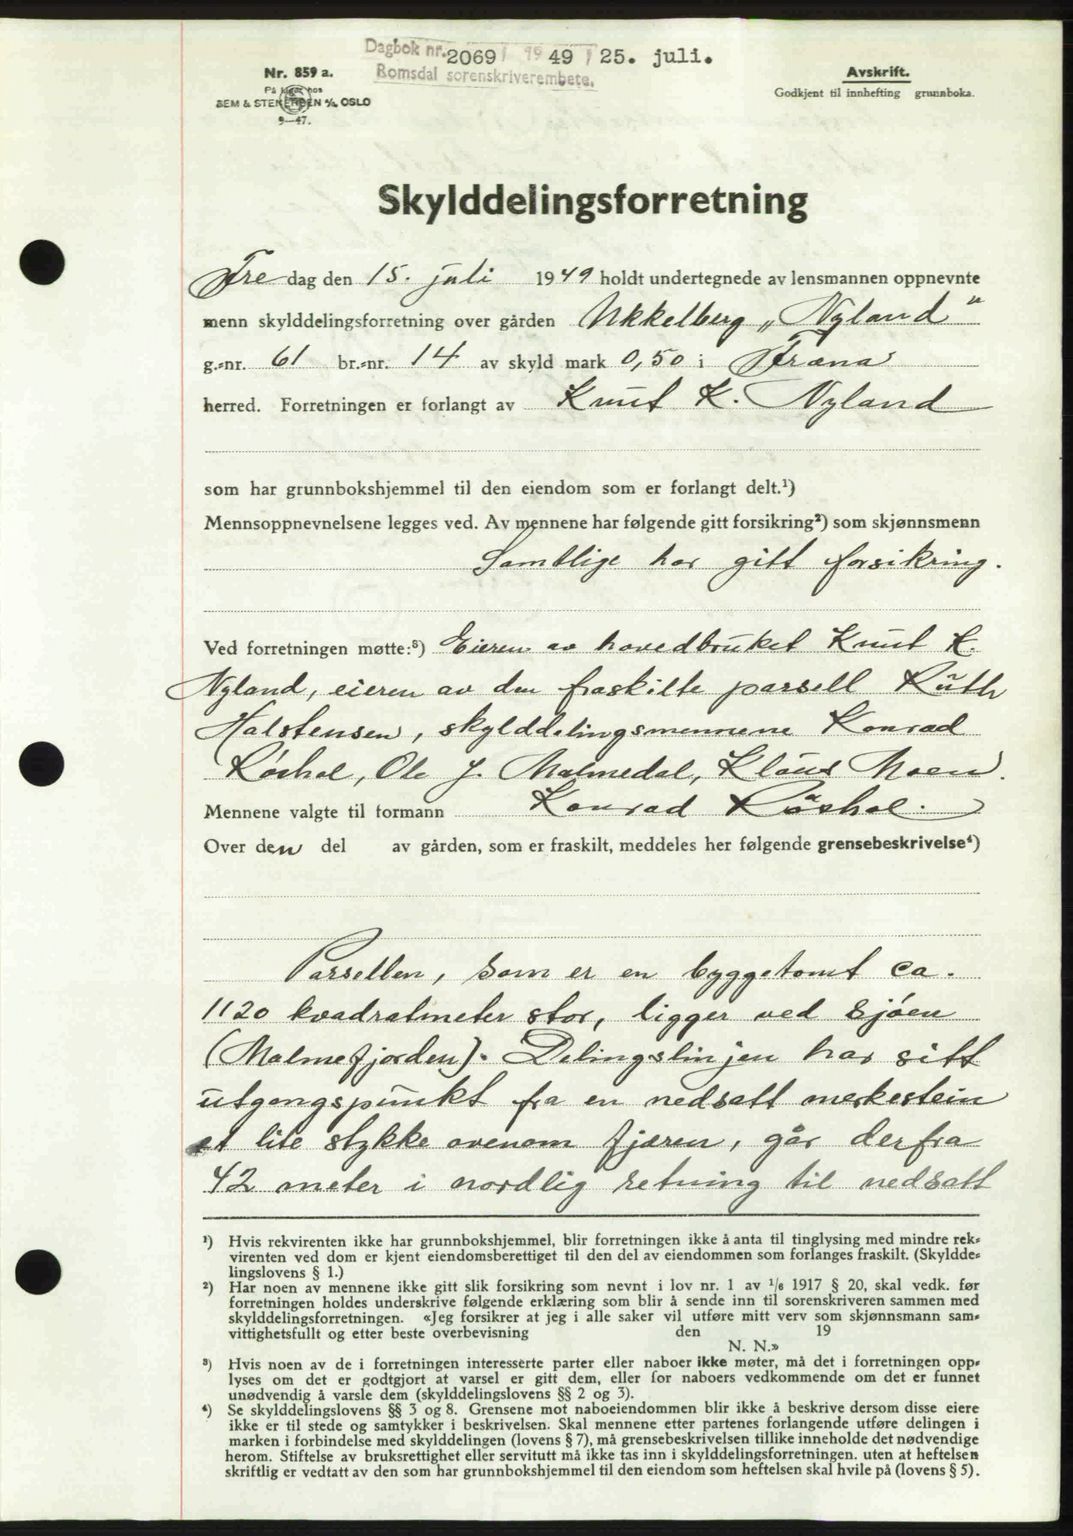 Dagbok nr. 2069 / 1949 / 25. juli.
Romsdal sorenskriverembete.
Nr. 859 a.
På lager hos
SEM & STENERSEN A/S, OSLO
9—47.
Avskrift.
Godkjent til innhefting grunnboka.
Skylddelingsforretning
Fre dag den 15. juli 1949 holdt undertegnede av lensmannen oppnevnte
menn skylddelingsforretning over gården Ukkelberg „Nyland"
g.-nr. 61 br.-nr. 14 av skyld mark 0,50 i Fræna
herred. Forretningen er forlangt av Knut K. Nyland
som har grunnbokshjemmel til den eiendom som er forlangt delt.¹)
Mennsoppnevnelsene legges ved. Av mennene har følgende gitt forsikring²) som skjønnsmenn
Samtlige har gitt forsikring.
Ved forretningen møtte:³) Eieren av hovedbruket Knut K.
Nyland, eieren av den fraskilte parsell Ruth
Halstensen, skylddelingsmennene Konrad
Røshol, Ole J. Malmedal, Klaus Moen.
Mennene valgte til formann Konrad Røshol.
Over den del av gården, som er fraskilt, meddeles her følgende grensebeskrivelse⁴)
Parsellen, som er en byggetomt ca.
1120 kvadratmeter stor, ligger ved sjøen
(Malmefjorden). Delingslinjen har sitt
utgangspunkt fra en nedsatt merkestein
et lite stykke ovenom fjæren, går derfra
42 meter i nordlig retning til nedsatt
¹) Hvis rekvirenten ikke har grunnbokshjemmel, blir forretningen ikke å anta til tinglysing med mindre rek-
virenten ved dom er kjent eiendomsberettiget til den del av eiendommen som forlanges fraskilt. (Skyldde-
lingslovens § 1.)
²) Har noen av mennene ikke gitt slik forsikring som nevnt i lov nr. 1 av 1/6 1917 § 20, skal vedk. før
forretningen holdes underskrive følgende erklæring som blir å sende inn til sorenskriveren sammen med
skylddelingsforretningen. «Jeg forsikrer at jeg i alle saker vil utføre mitt verv som skjønnsmann sam-
vittighetsfullt og etter beste overbevisning den 19
N. N.»
³) Hvis noen av de i forretningen interesserte parter eller naboer ikke møter, må det i forretningen opp-
lyses om det er godtgjort at varsel er gitt dem, eller for naboers vedkommende om det er funnet
unødvendig å varsle dem (skylddelingslovens §§ 2 og 3).
⁴) Se skylddelingslovens §§ 3 og 8. Grensene mot naboeiendommen blir ikke å beskrive dersom disse eiere
ikke er til stede og samtykker i beskrivelsen. Skal mennene etter partenes forlangende utføre delingen i
marken i forbindelse med skylddelingen (lovens § 7), må grensebeskrivelsen tillike inneholde det nødvendige
herom. Stiftelse av bruksrettighet eller servitutt må ikke tas inn i skylddelingsforretningen. uten at heftelsen
skriftlig er vedtatt av den som har grunnbokshjemmel til den eiendom som heftelsen skal hvile på (lovens § 5).